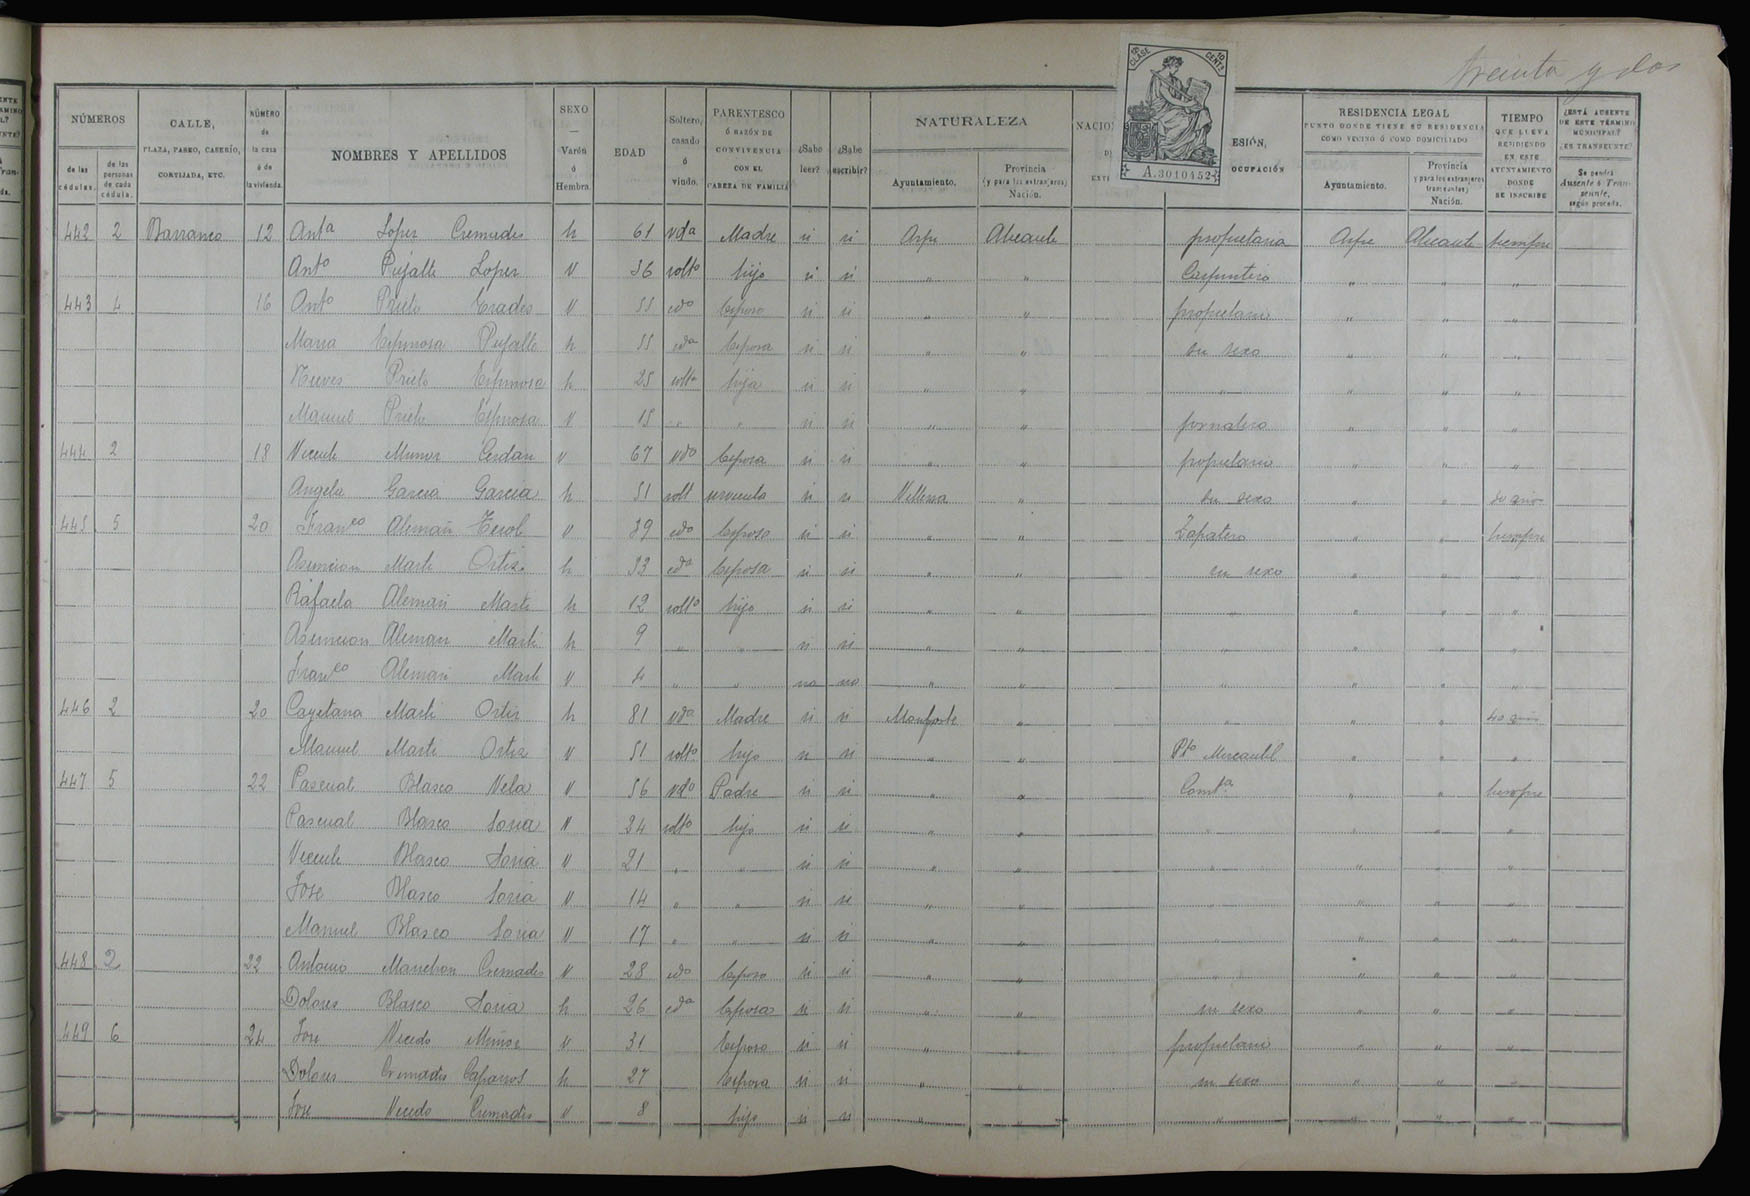 treinta y dos
18 CLASE 10 CENTS
A.3010452
NÚMEROS
de las cédulas.
de las personas de cada cédula.
CALLE,
PLAZA, PASEO, CASERÍO,
CORTIJADA, ETC.
NÚMERO de la casa ó de la vivienda.
NOMBRES Y APELLIDOS
SEXO — Varón ó Hembra.
EDAD
Soltero, casado ó viudo.
PARENTESCO Ó RAZÓN DE CONVIVENCIA CON EL CABEZA DE FAMILIA
¿Sabe leer?
¿Sabe escribir?
NATURALEZA
Ayuntamiento.
Provincia (y para los extranjeros) Nación.
NACIO
EXTI
ESIÓN,
OCUPACIÓN
RESIDENCIA LEGAL
PUNTO DONDE TIENE SU RESIDENCIA
COMO VECINO Ó COMO DOMICILIADO
Ayuntamiento.
Provincia y para los extranjeros transeuntes) Nación.
TIEMPO QUE LLEVA RESIDIENDO EN ESTE AYUNTAMIENTO DONDE SE INSCRIBE
¿ESTÁ AUSENTE DE ESTE TÉRMINO MUNICIPAL? ¿ES TRANSEUNTE?
Se pondrá Ausente ó Transeunte, según proceda.
442 2 Barranco 12 Antª Lopez Cremades h 61 vdª Madre si si Aspe Alicante propietaria Aspe Alicante siempre
Antº Pujalte Lopez V 36 soltº hijo si si " " Carpintero " " "
443 4 16 Antº Prieto Erades V 55 cdo Esposo si si " " propietario " " "
Maria Espinosa Pujalte h 55 cda Esposa si si " " su sexo " " "
Nieves Prieto Espinosa h 25 solta hija si si " " " " " "
Manuel Prieto Espinosa V 15 " " si si " " jornalero " " "
444 2 18 Vicente Munoz Cerdan V 67 vdo Esposo si si " " propietario " " "
Angela Garcia Garcia h 51 solt sirvienta si si Villena " su sexo " " años
445 5 20 Franco Alemañ Terol V 39 cdo Esposo si si " " Zapatero " " siempre
Asuncion Marti Ortiz h 33 cda Esposa si si " " su sexo " " "
Rafaela Alemañ Marti h 12 solto hijo si si " " " " " "
Asuncion Alemañ Marti h 9 " " si si " " " " " "
Franco Alemañ Marti V 4 " " no no " " " " " "
446 2 20 Cayetana Marti Ortiz h 81 vda Madre si si Monforte " " " " 40 años
Manuel Marti Ortiz V 51 solto hijo si si " " Pto Mercantil " " "
447 5 22 Pascual Blasco Vela V 56 vdo Padre si si " " " " siempre
Pascual Blasco Soria V 24 solto hijo si si " " " " " "
Vicente Blasco Soria V 21 " " si si " " " " " "
Jose Blasco Soria V 14 " " si si " " " " " "
Manuel Blasco Soria V 17 " " si si " " " " " "
448 2 22 Antonio Manchon Cremades V 28 cdo Esposo si si " " " " " "
Dolores Blasco Soria h 26 cda Esposa si si " " su sexo " " "
449 6 24 Jose Vicedo Muñoz V 31 Esposo si si " " propietario " " "
Dolores Cremades Caparros h 27 Esposa si si " " su sexo " " "
Jose Vicedo Cremades V 8 hijo si si " " " " " "